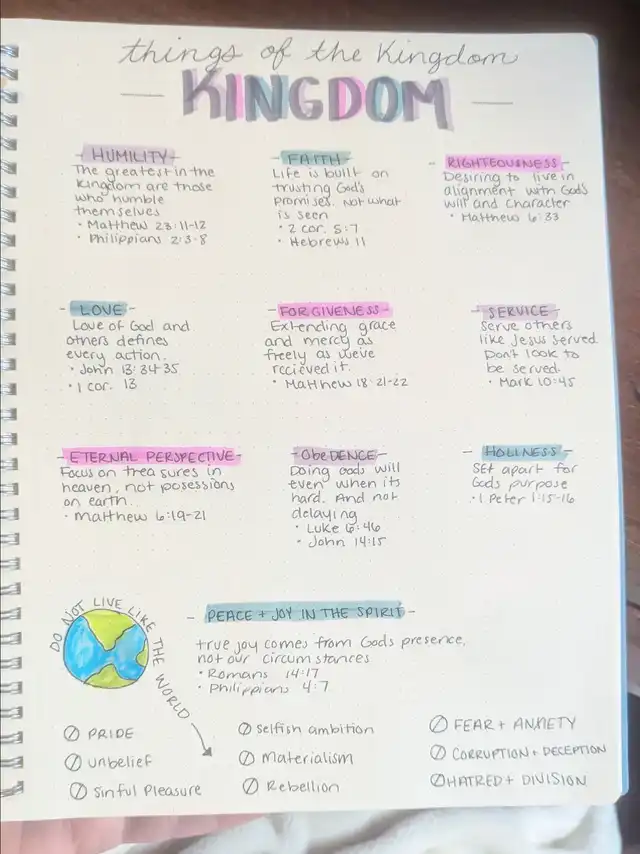 things of the Kingdom
KINGDOM
- HUMILITY -
The greatest in the
Kingdom are those
who humble
themselves
• Matthew 23:11-12
• Philippians 2:3-8
- FAITH -
Life is built on
trusting God's
promises. Not what
is seen
• 2 cor. 5:7
• Hebrews 11
- RIGHTEOUSNESS -
Desiring to live in
alignment with God's
will and character
• Matthew 6:33
- LOVE -
Love of God and
others defines
every action.
• John 13:34-35
• 1 cor. 13
- FORGIVENESS -
Extending grace
and mercy as
freely as we've
recieved it.
• Matthew 18:21-22
- SERVICE -
Serve others
like Jesus served.
Don't look to
be served.
• Mark 10:45
- ETERNAL PERSPECTIVE -
Focus on treasures in
heaven, not posessions
on earth.
• Matthew 6:19-21
- ObeDENCE -
Doing gods will
even when its
hard. And not
delaying
• Luke 6:46
• John 14:15
- HOLINESS -
Set apart for
Gods purpose
• 1 Peter 1:15-16
DO NOT LIVE LIKE THE WORLD
- PEACE + JOY IN THE SPIRIT -
true joy comes from Gods presence,
not our circumstances
• Romans 14:17
• Philippians 4:7
PRIDE
unbelief
Sinful Pleasure
Selfish ambition
Materialism
Rebellion
FEAR + ANXIETY
CORRUPTION + DECEPTION
HATRED + DIVISION